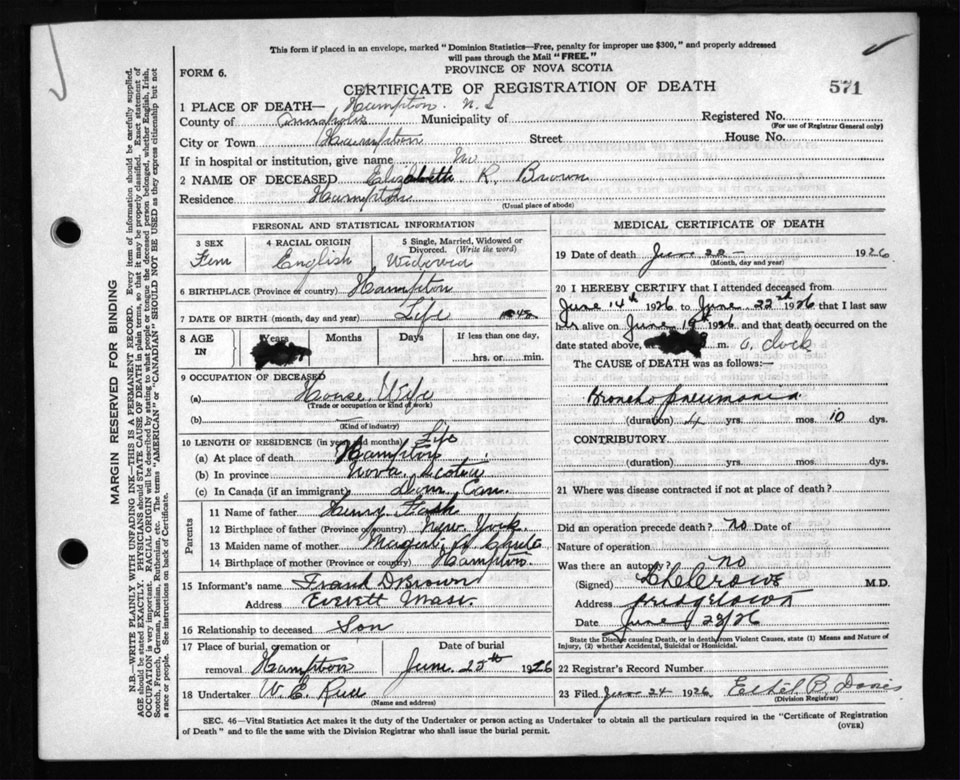 This form if placed in an envelope, marked "Dominion Statistics—Free, penalty for improper use $300," and properly addressed
will pass through the Mail "FREE."
FORM 6.
PROVINCE OF NOVA SCOTIA
CERTIFICATE OF REGISTRATION OF DEATH
571
1 PLACE OF DEATH— Hampton. N. S
County of Annapolis Municipality of Registered No.
(For use of Registrar General only)
City or Town Hampton Street House No.
If in hospital or institution, give name
2 NAME OF DECEASED Elizabeth R. Brown
Residence Hampton
(Usual place of abode)
PERSONAL AND STATISTICAL INFORMATION
3 SEX
Fem
4 RACIAL ORIGIN
English
5 Single, Married, Widowed or
Divorced. (Write the word)
Widowed
6 BIRTHPLACE (Province or country) Hampton
7 DATE OF BIRTH (month, day and year) Life
8 AGE
IN
Years Months Days If less than one day,
hrs. or min.
9 OCCUPATION OF DECEASED
(a) House Wife
(Trade or occupation or kind of work)
(b)
(Kind of industry)
10 LENGTH OF RESIDENCE (in years and months) Life
(a) At place of death Hampton
(b) In province Nova Scotia
(c) In Canada (if an immigrant) Can.
Parents
11 Name of father Henry
12 Birthplace of father (Province or country) New York
13 Maiden name of mother Chute
14 Birthplace of mother (Province or country) Hampton.
15 Informant's name Frank D Brown
Address Everett Mass.
16 Relationship to deceased Son
17 Place of burial, cremation or
removal Hampton
Date of burial
June 25th 1926
18 Undertaker W. E.
(Name and address)
MEDICAL CERTIFICATE OF DEATH
19 Date of death June 22 1926
(Month, day and year)
20 I HEREBY CERTIFY that I attended deceased from
June 14th 1926 to June 22nd 1926 that I last saw
her alive on June 1926 and that death occurred on the
date stated above, m. o, clock
The CAUSE of DEATH was as follows:—
Broncho pneumonia
(duration) yrs. mos. 10 dys.
CONTRIBUTORY
(duration) yrs. mos. dys.
21 Where was disease contracted if not at place of death?
Did an operation precede death? no Date of
Nature of operation
Was there an autopsy? no
(Signed) M.D.
Address Bridgetown
Date June 28/26
State the Disease causing Death, or in death from Violent Causes, state (1) Means and Nature of
Injury, (2) whether Accidental, Suicidal or Homicidal.
22 Registrar's Record Number
23 Filed June 24 1926 Ethel B.
(Division Registrar)
SEC. 46—Vital Statistics Act makes it the duty of the Undertaker or person acting as Undertaker to obtain all the particulars required in the "Certificate of Registration
of Death" and to file the same with the Division Registrar who shall issue the burial permit.
(OVER)
MARGIN RESERVED FOR BINDING
N.B.—WRITE PLAINLY WITH UNFADING INK—THIS IS A PERMANENT RECORD. Every item of information should be carefully supplied.
AGE should be stated EXACTLY. PHYSICIANS should STATE CAUSE OF DEATH in plain terms, so that it may be properly classified. Exact statement of
OCCUPATION is very important. RACIAL ORIGIN will be described by stating to what people or tongue the deceased person belonged, whether English, Irish,
Scotch, French, German, Russian, Ruthenian, etc. The terms "AMERICAN" or "CANADIAN" SHOULD NOT BE USED as they express citizenship but not
a race or people. See instructions on back of Certificate.